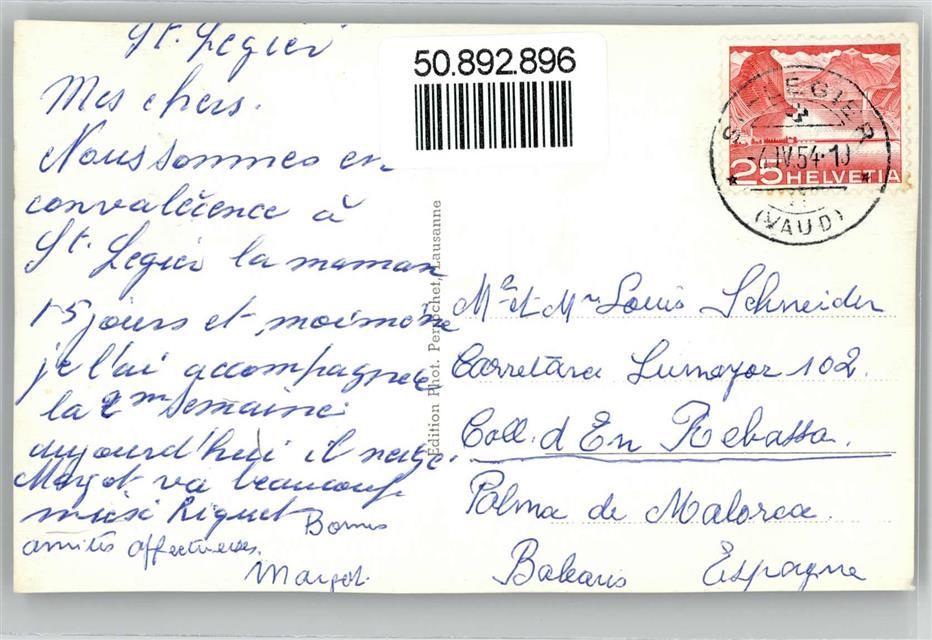 St. Legier
Mes chers.
Nous sommes en
convalécence à
St. Legier la maman
15 jours et moi même
je l'ai accompagnée
la 2me semaine.
aujourd'hui il neige.
Margot va beaucoup
mieux Riquet
Bonnes
amitiés affectueuses.
Margot.
50.892.896
Edition Phot. Perrochet, Lausanne
ST LEGIER
IV.54-10
(VAUD)
25 HELVETIA
Me et Mr Louis Schneider
Carretera Lumayor 102.
Coll. d'En Rebassa.
Palma de Malorca
Balearis Espagne